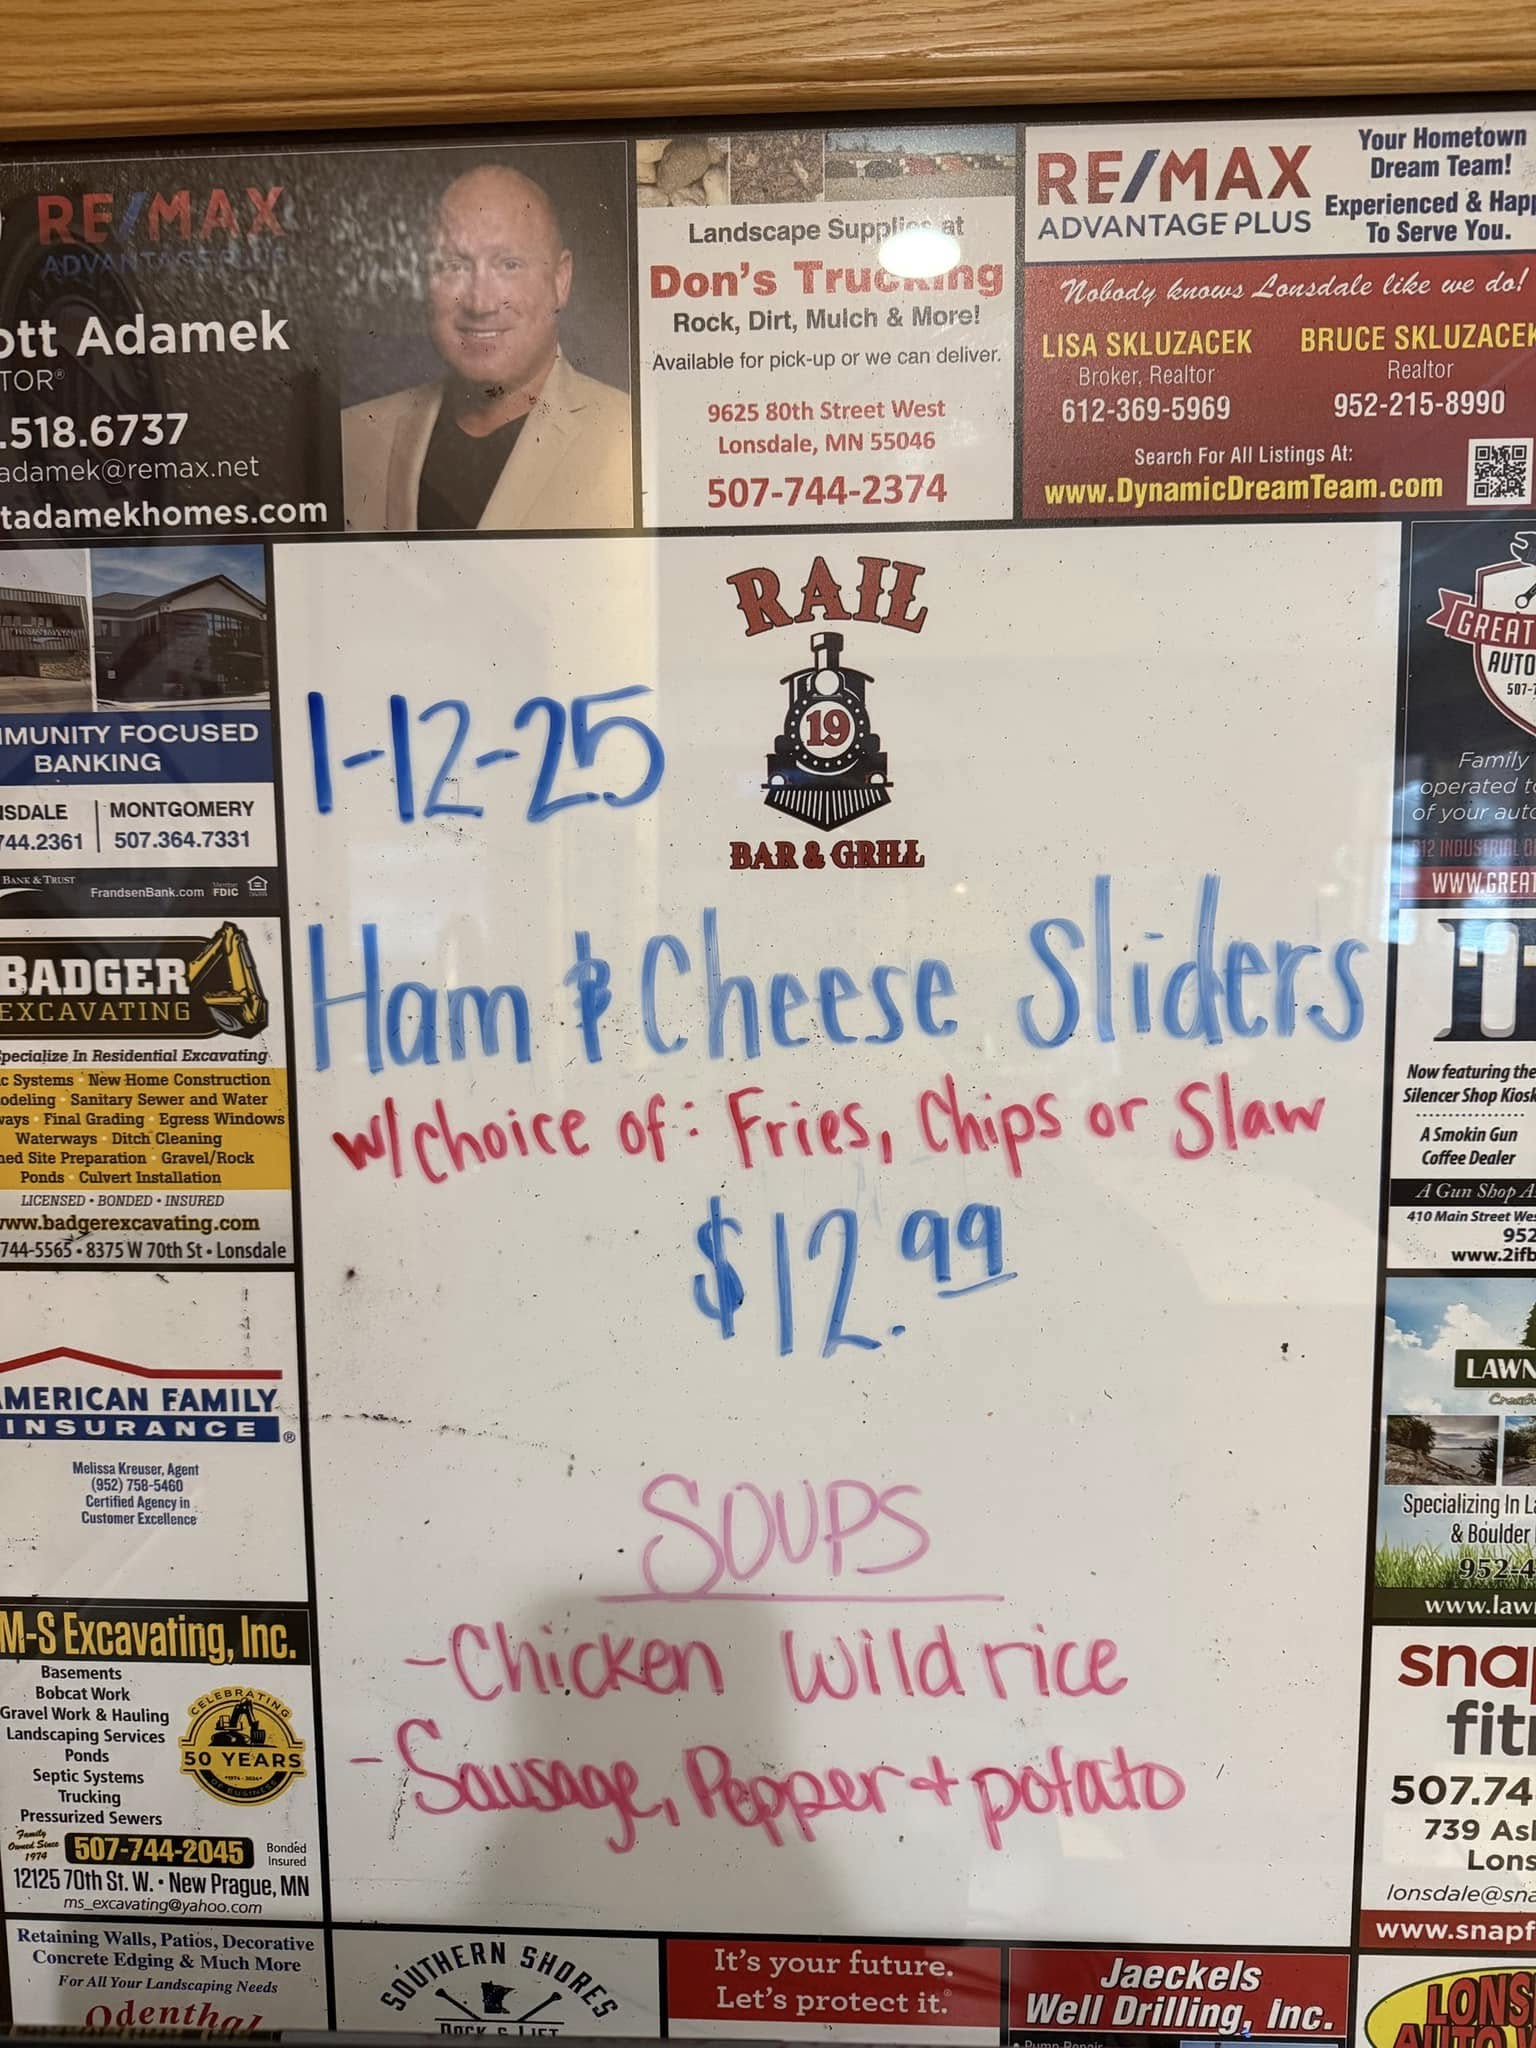 RE/MAX
ADVANTAGE PLUS
ott Adamek
TOR®
.518.6737
adamek@remax.net
tadamekhomes.com
Landscape Supplies at
Don's Trucking
Rock, Dirt, Mulch & More!
Available for pick-up or we can deliver.
9625 80th Street West
Lonsdale, MN 55046
507-744-2374
RE/MAX
ADVANTAGE PLUS
Your Hometown
Dream Team!
Experienced & Happ
To Serve You.
Nobody knows Lonsdale like we do!
LISA SKLUZACEK
Broker, Realtor
612-369-5969
BRUCE SKLUZACEK
Realtor
952-215-8990
Search For All Listings At:
www.DynamicDreamTeam.com
MMUNITY FOCUSED
BANKING
NSDALE
744.2361
MONTGOMERY
507.364.7331
BANK & TRUST
FrandsenBank.com
Member
FDIC
BADGER
EXCAVATING
pecialize In Residential Excavating
c Systems • New Home Construction
odeling • Sanitary Sewer and Water
ways • Final Grading • Egress Windows
Waterways • Ditch Cleaning
ned Site Preparation • Gravel/Rock
Ponds • Culvert Installation
LICENSED • BONDED • INSURED
www.badgerexcavating.com
744-5565 • 8375 W 70th St • Lonsdale
AMERICAN FAMILY
INSURANCE®
Melissa Kreuser, Agent
(952) 758-5460
Certified Agency in
Customer Excellence
M-S Excavating, Inc.
Basements
Bobcat Work
Gravel Work & Hauling
Landscaping Services
Ponds
Septic Systems
Trucking
Pressurized Sewers
CELEBRATING
50 YEARS
•1974 - 2024•
OF BUSINESS
Family
Owned Since
1974
507-744-2045
Bonded
Insured
12125 70th St. W. • New Prague, MN
ms_excavating@yahoo.com
Retaining Walls, Patios, Decorative
Concrete Edging & Much More
For All Your Landscaping Needs
Odenthal
RAIL
19
BAR & GRILL
1-12-25
Ham & Cheese Sliders
w/choice of: Fries, Chips or Slaw
$12.99
SOUPS
-Chicken Wild rice
-Sausage, Pepper + potato
GREAT
AUTO
507-7
Family
operated to
of your auto
12 INDUSTRIAL
WWW.GREAT
Now featuring the
Silencer Shop Kiosk
A Smokin Gun
Coffee Dealer
A Gun Shop A
410 Main Street Wes
952
www.2ifb
LAWN
Specializing In La
& Boulder
952-4
www.lawn
snap
fitn
507.74
739 Ash
Lons
lonsdale@sna
www.snapf
SOUTHERN SHORES
DOCK & LIFT
It's your future.
Let's protect it.®
Jaeckels
Well Drilling, Inc.
• Pump Repair
LONS
AUTO